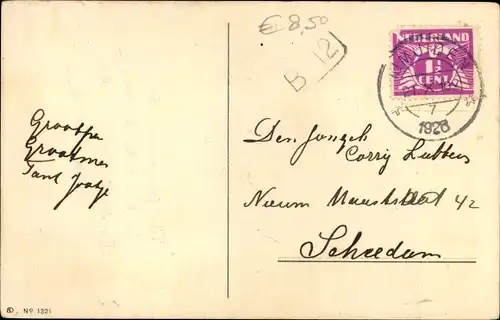 € 8,50
B 12
NEDERLAND
1½
CENT
1928
Grootpa
Grootma
Tant
Den Jongeh
Corry Lubbers
Nieuw 42
Schiedam
Nº 1321